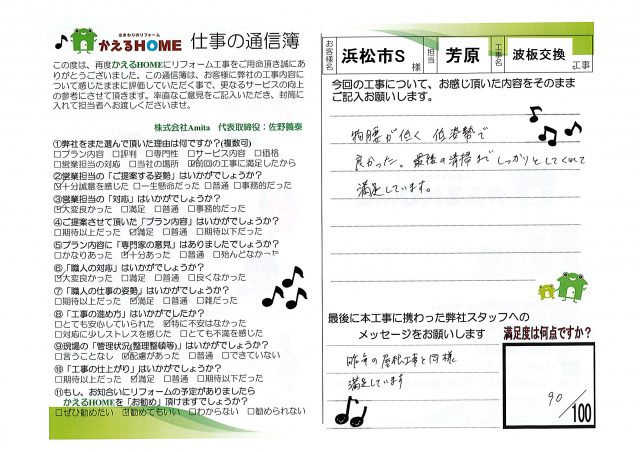 水まわりのリフォーム
かえるHOME 仕事の通信簿
この度は、再度かえるHOMEにリフォーム工事をご用命頂き誠にあ
りがとうございました。この通信簿は、お客様に弊社の工事内容に
ついて感じたままに評価していただく事で、更なるサービスの向上
の参考にさせて頂きます。率直なご意見をご記入いただき、封筒に
入れて担当者へお渡しくださいませ。
株式会社Amita 代表取締役：佐野義泰
①弊社をまた選んで頂いた理由は何ですか?(複数可)
□プラン内容 □評判 □専門性 □サービス内容 □価格
□営業担当の対応 □当社の場所 ☑前回の工事に満足したから
②営業担当の「ご提案する姿勢」はいかがでしょうか?
☑十分誠意を感じた □一生懸命だった □普通 □事務的だった
③営業担当の「対応」はいかがでしょうか?
☑大変良かった □満足 □普通 □事務的だった
④ご提案させて頂いた「プラン内容」はいかがでしょうか?
□期待以上だった ☑満足 □普通 □期待以下だった
⑤プラン内容に「専門家の意見」はありましたでしょうか?
□かなりあった ☑十分あった □普通 □殆んどなかった
⑥「職人の対応」はいかがでしょうか?
☑大変良かった □満足 □普通 □良くなかった
⑦「職人の仕事の姿勢」はいかがでしょうか?
□期待以上だった ☑満足 □普通 □雑だった
⑧「工事の進め方」はいかがでしたか?
□とても安心していられた ☑特に不安はなかった
□対応に少しストレスを感じた □とても不満を感じた
⑨現場の「管理状況(整理整頓等)」はいかがでしょうか?
□言うことなし ☑配慮があった □普通 □できていない
⑩「工事の仕上がり」はいかがでしょうか?
□期待以上だった ☑満足 □普通 □期待以下だった
⑪もし、お知合いにリフォームの予定がありましたら
かえるHOMEを「お勧め」頂けますでしょうか?
□ぜひ勧めたい ☑勧めてもいい □わからない □勧められない
お客様名 浜松市S 様 担当 芳原 工事名 波板交換 工事
今回の工事について、お感じ頂いた内容をそのまま
ご記入お願いします。
物腰が低く 低姿勢で
良かった。最後の清掃まで しっかりとしてくれて
満足しています。
最後に本工事に携わった弊社スタッフへの
メッセージをお願いします
昨年の屋根工事と同様
満足しています
満足度は何点ですか?
90/100